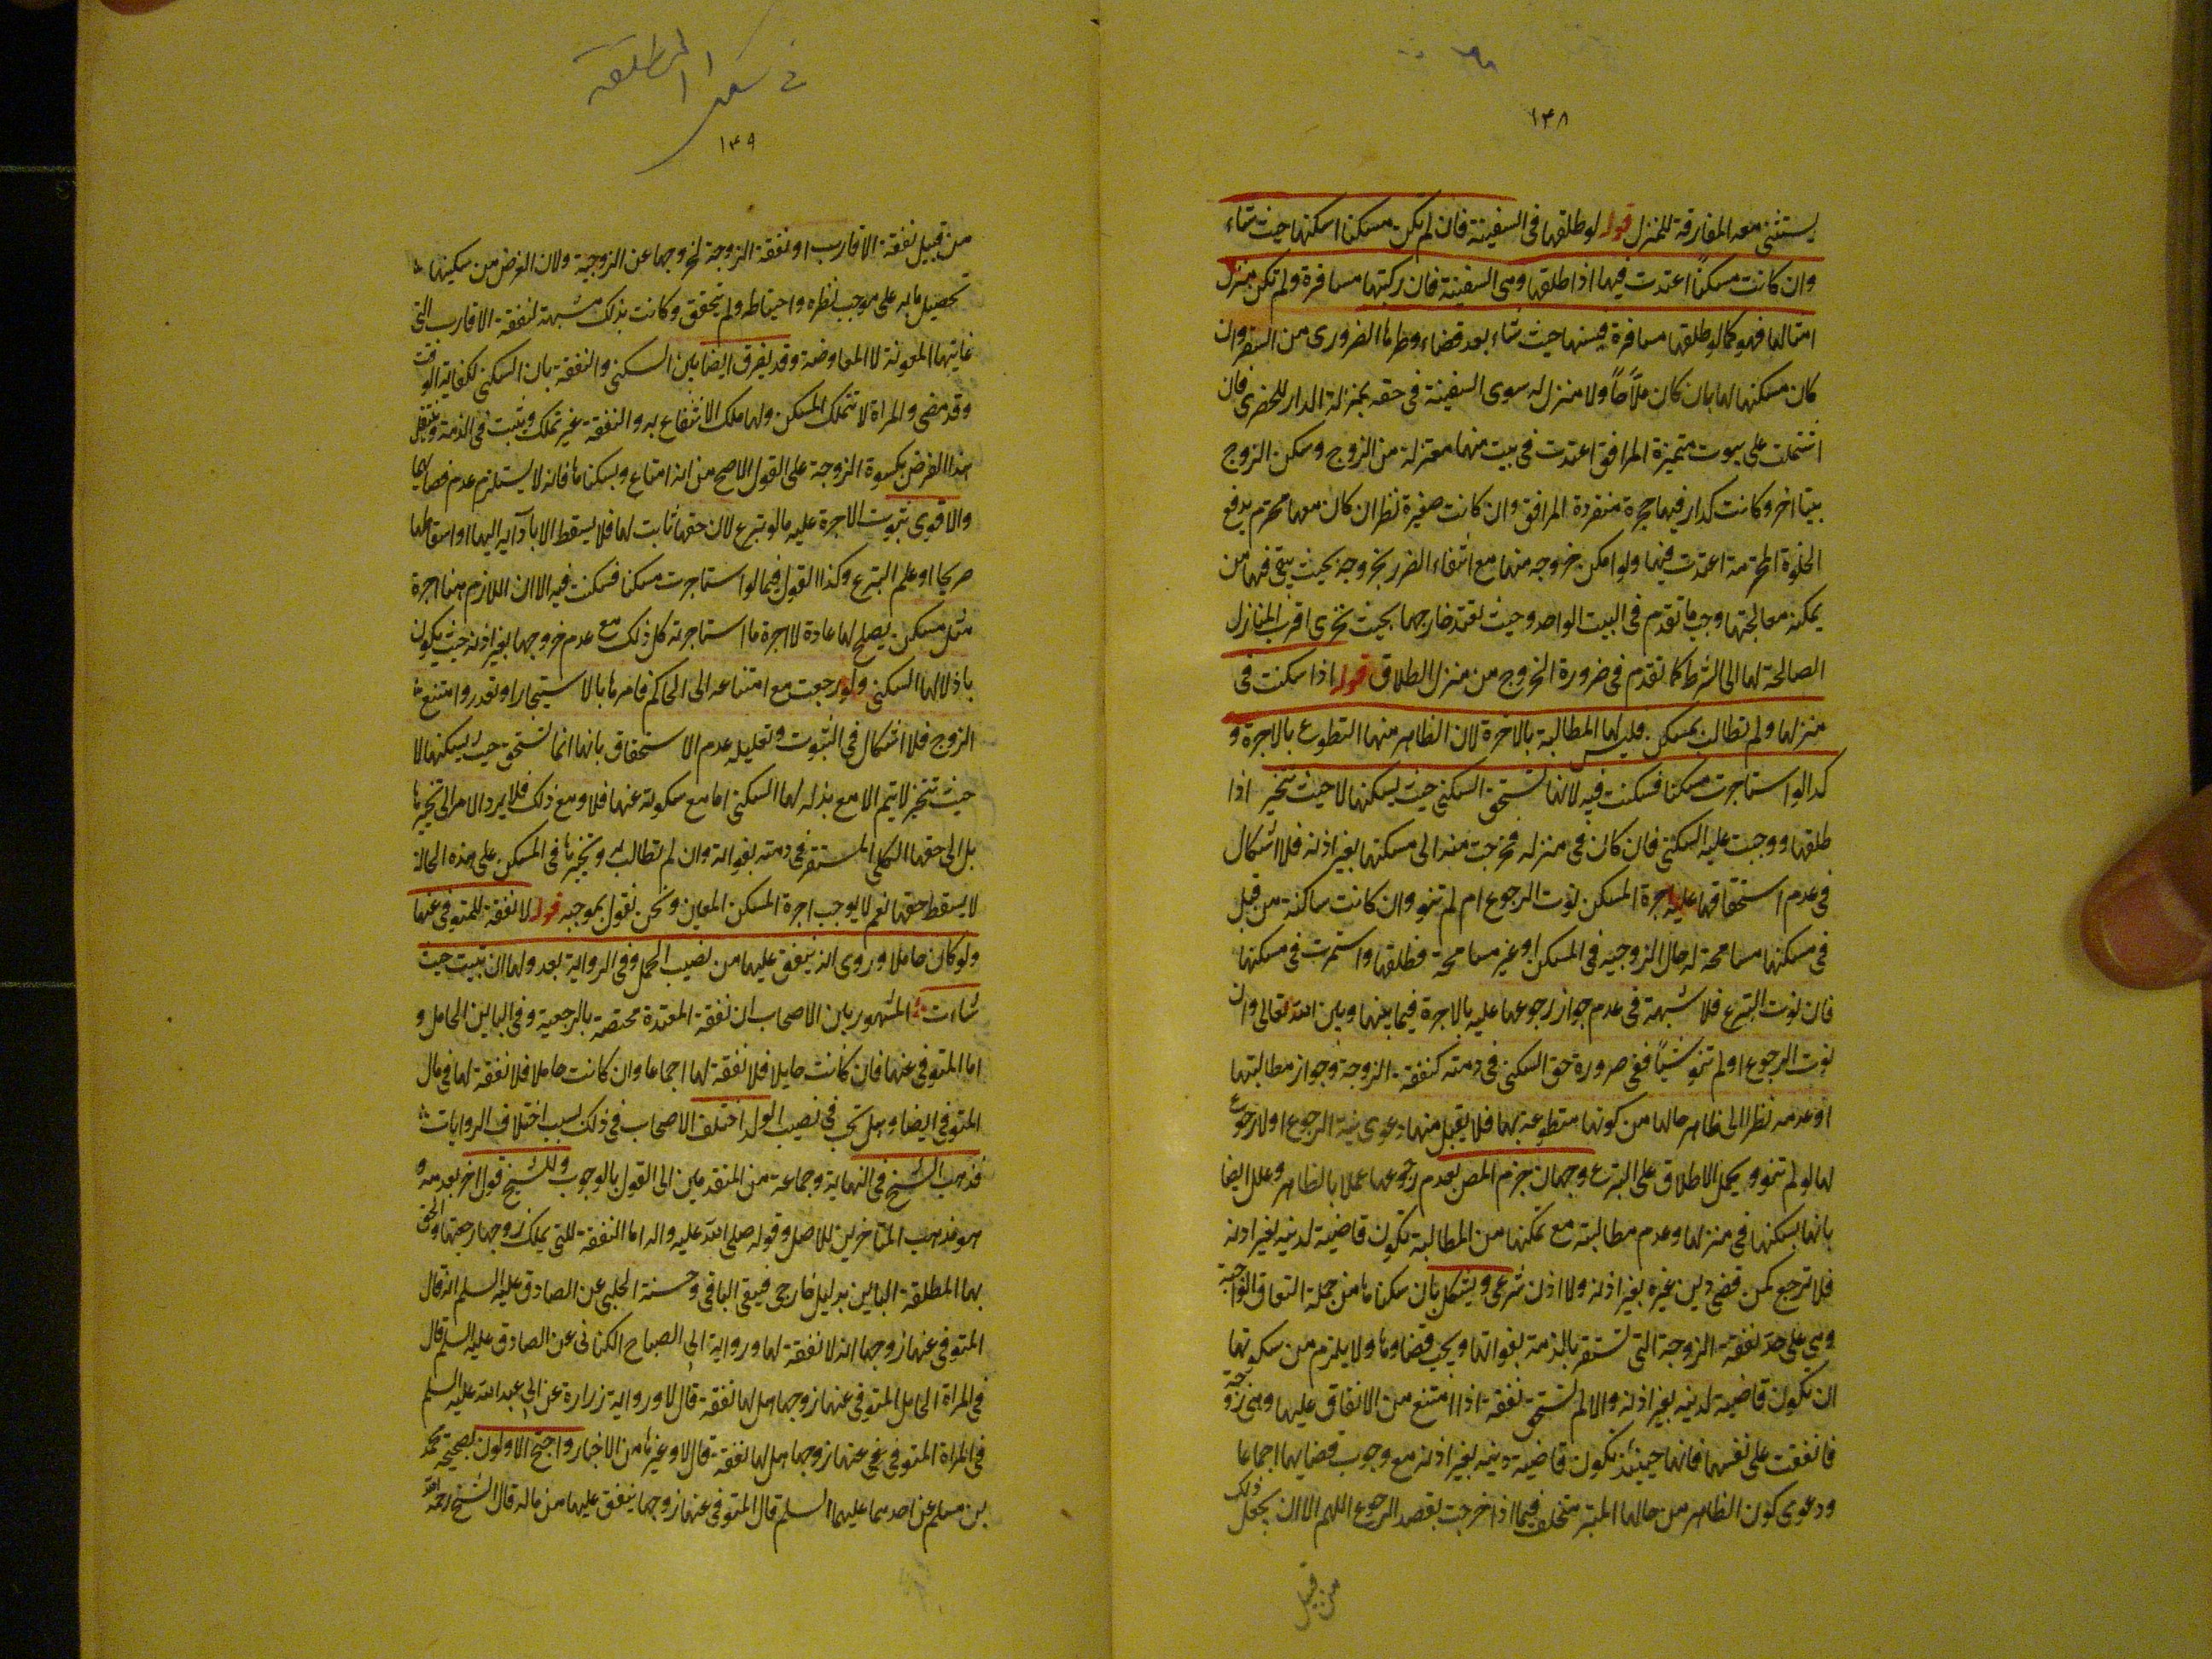 ١٤٨
يستثنى معه المفارقة للمنزل قوله لو طلقها فى السفينة فان لم تكن مسكنا اسكنها حيث شاء
وان كانت مسكنًا اعتدت فيها اذا طلقها وهى السفينة فان ركبتها مسافرة ولم تكن منزل
امثالها فهو كما لو طلقها مسافرة فيسكنها حيث شاء بعد قضاء وطرها الضرورى من السفر وان
كان مسكنها لها بان كان ملّاحًا ولا منزل له سوى السفينة فى حقه بمنزلة الدار للحضرى فان
اشتملت على بيوت متميزة المرافق اعتدت فى بيت منها معتزلة من الزوج وسكن الزوج
بيتا اخر وكانت كدار فيها حجرة منفردة المرافق وان كانت صغيرة نظر ان كان معها محرم يدفع
الخلوة المحرمة اعتدت فيها ولو امكن خروجه منها مع انتفاء الضرر بخروجه بحيث يبقى فيها من
يمكنه معالجتها وجب ما تقدم فى البيت الواحد وحيث تعتد خارجها بحيث تتحرى اقرب المنازل
الصالحة لها الى الشط كما تقدم فى ضرورة الخروج من منزل الطلاق قوله اذا سكنت فى
منزلها ولم تطالب بمسكن فليس لها المطالبة بالاجرة لان الظاهر منها التطوع بالاجرة و
كذا لو استاجرت مسكنا فسكنت فيه لانها تستحق السكنى حيث يسكنها لا حيث تتخير اذا
طلقها ووجبت عليه السكنى فان كان فى منزله فخرجت منه الى مسكنها بغير اذنه فلا اشكال
فى عدم استحقاقها عليه اجرة المسكن نوت الرجوع ام لم تنو وان كانت ساكنة من قبل
فى مسكنها مسامحة له حال الزوجيه فى المسكن او غير مسامحة فطلقها واستمرت فى مسكنها
فان نوت التبرع فلا شبهة فى عدم جواز رجوعها عليه بالاجرة فيما بينها وبين الله تعالى وان
نوت الرجوع او لم تنو شيئًا ففى صرورة حق السكنى فى ذمته كنفقة الزوجة وجواز مطالبتها
او عدمه نظرا الى ظاهر حالها من كونها متطوعة بها فلا يقبل منها دعوى نية الرجوع او لا رجوع
لها لو لم تنو ويحمل الاطلاق على التبرع وجهان جزم المص بعدم رجوعها عملا بالظاهر وعلل ايضا
بانها بسكنها فى منزلها وعدم مطالبته مع تمكنها من المطالبة تكون قاضية لدينه بغير اذنه
فلا ترجع كمن قضى دين غيره بغير اذنه ولا اذن شرعى ويشكل بان سكناها من جملة النفقات الواجبة
وهى على حد نفقة الزوجة التى تستقر بالذمة بفواتها ويجب قضاوها ولا يلزم من سكوتها
ان تكون قاضية لدينه بغير اذنه والا لم تستحق نفقة اذا امتنع من الانفاق عليها وهى زوجة
فانفقت على نفسها فانها حينئذ تكون قاضية دينه بغير اذنه مع وجوب قضايها اجماعا
ودعوى كون الظاهر من حالها التبرع متخلف فيما اذا خرجت بقصد الرجوع اللهم الا ان يجعل ذلك
من قبيل
فى سكنى المطلقة
١٤٩
من قبيل نفقة الاقارب او نفقة الزوجة لخروجها عن الزوجية ولان الغرض من سكنيها
تحصيل مايه على موجب نظره واحتياطه ولم يتحقق وكانت بذلك مشبهة لنفقة الاقارب التى
غايتها المعونة لا المعاوضة وقد يفرق ايضا بين السكنى والنفقة بان السكنى لكفاية الوقت
وقد مضى والمراة لا تتملك المسكن ولها ملك الانتفاع به والنفقة عين تملك ويثبت فى الذمة وينتقل
هذا الفرض بكسوة الزوجة على القول الاصح من انه امتاع وبسكناها فانه لا يستلزم عدم قضايها
والاقوى ثبوت الاجرة عليه مالو تبرع لان حقها ثابت لها فلا يسقط الا باداءه اليها او اسقاطها
صريحا او علم التبرع وكذا القول فيما لو استاجرت مسكنا فسكنت فيه الا ان اللازم هنا اجرة
مثل مسكن يصلح لها عادة لا اجرة ما استاجرته كل ذلك مع عدم خروجها بغير اذنه حيث يكون
باذلا لها السكنى ولو رجعت مع امتناعه الى الحاكم فامرها بالاستيجار او تعذر وامتنع
الزوج فلا اشكال فى الثبوت وتعليله عدم الاستحقاق بانها انما تستحق حيث يسكنها لا
حيث تتخير لا يتم الا مع بذله لها السكنى اما مع سكوته عنها فلا ومع ذلك فلا يرد الامر الى تخيرها
بل الى حقها الكلى المستقر فى ذمته بفواته وان لم تطالب به وتخيرها فى المسكن على هذه الحالة
لا يسقط حقها نعم لا يوجب اجرة المسكن المعين ونحن نقول بموجبه قوله لا نفقة للمتوفى عنها
ولو كان حاملا وروى انه ينفق عليها من نصيب الحمل وفى الرواية بعد ولها ان تبيت حيث
شاءت المشهور بين الاصحاب ان نفقة المعتدة مختصة بالرجعية وفى الباين الحامل و
اما المتوفى عنها فان كانت حايلا فلا نفقة لها اجماعا وان كانت حاملا فلا نفقة لها فى مال
المتوفى ايضا وهل تجب فى نصيب الولد اختلف الاصحاب فى ذلك بسبب اختلاف الروايات
فذهب الشيخ فى النهاية وجماعة من المتقدمين الى القول بالوجوب وللشيخ قول اخر بعدمه و
هو مذهب المتاخرين للاصل وقوله صلى الله عليه واله اما النفقة للتى يملك زوجها رجعتها والحق
بها المطلقة الباين بدليل خارجى فيبقى الباقى وحسنة الحلبى عن الصادق عليه السلم انه قال
المتوفى عنها زوجها انه لا نفقة لها ورواية ابى الصباح الكنانى عن الصادق عليه السلم قال
فى المراة الحامل المتوفى عنها زوجها هل لها نفقة قال لا ورواية زرارة عن ابى عبد الله عليه السلم
فى المراة المتوفى عنها زوجها هل لها نفقة قال لا وغيرها من الاخبار واحتج الاولون بصحيحة محمد
بن مسلم عن احدهما عليهما السلم قال المتوفى عنها زوجها ينفق عليها من ماله قال الشيخ رحمه الله